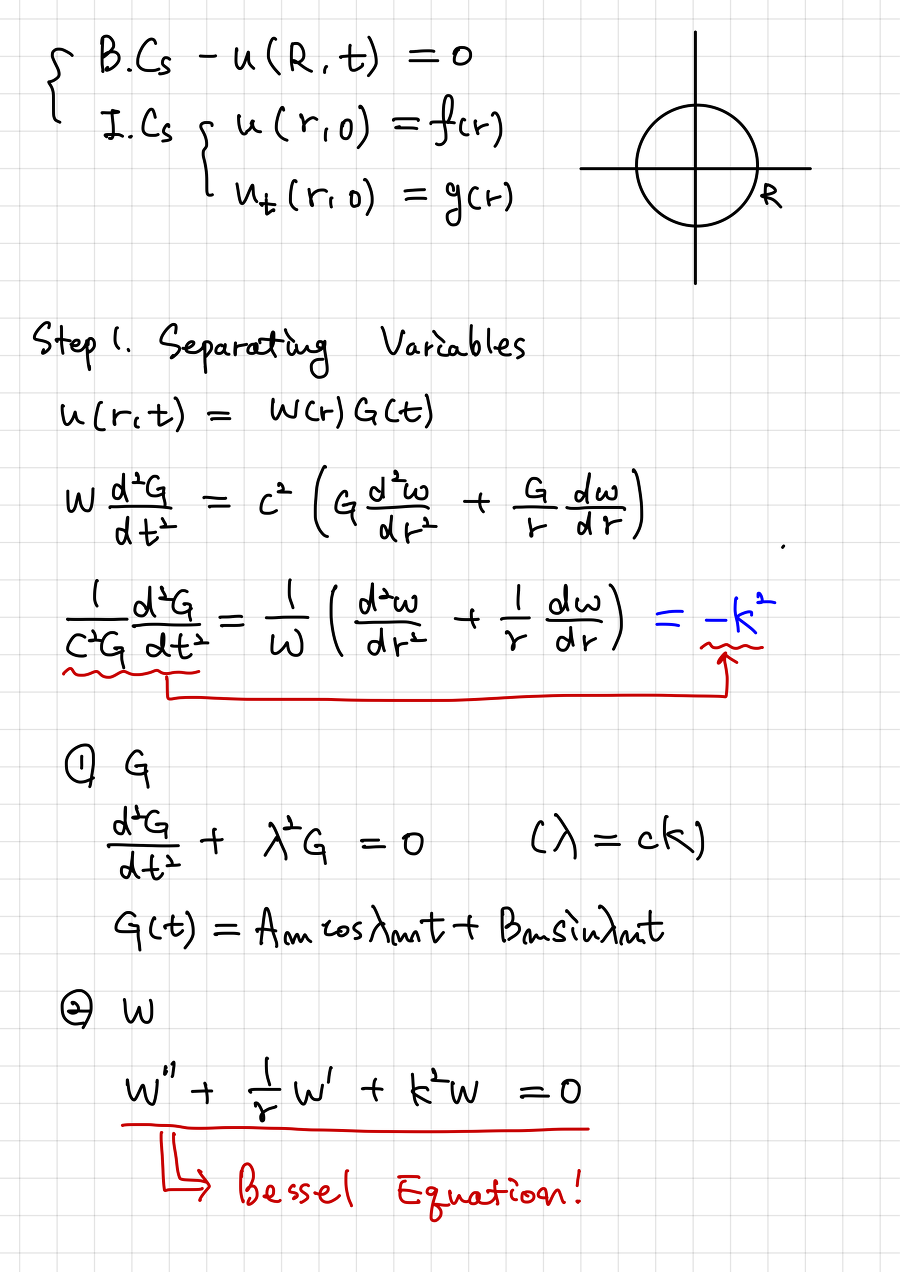 B.Cs - u(R,t) = 0
I.Cs { u(r,0) = f(r)
u_t(r,0) = g(r)
R
Step 1. Separating Variables
u(r,t) = W(r)G(t)
W d²G/dt² = c² (G d²w/dr² + G/r dw/dr)
1/(c²G) d²G/dt² = 1/W (d²w/dr² + 1/r dw/dr) = -k²
① G
d²G/dt² + λ²G = 0 (λ = ck)
G(t) = Am cosλmt + Bm sinλmt
② W
W'' + 1/r W' + k²W = 0
Bessel Equation!